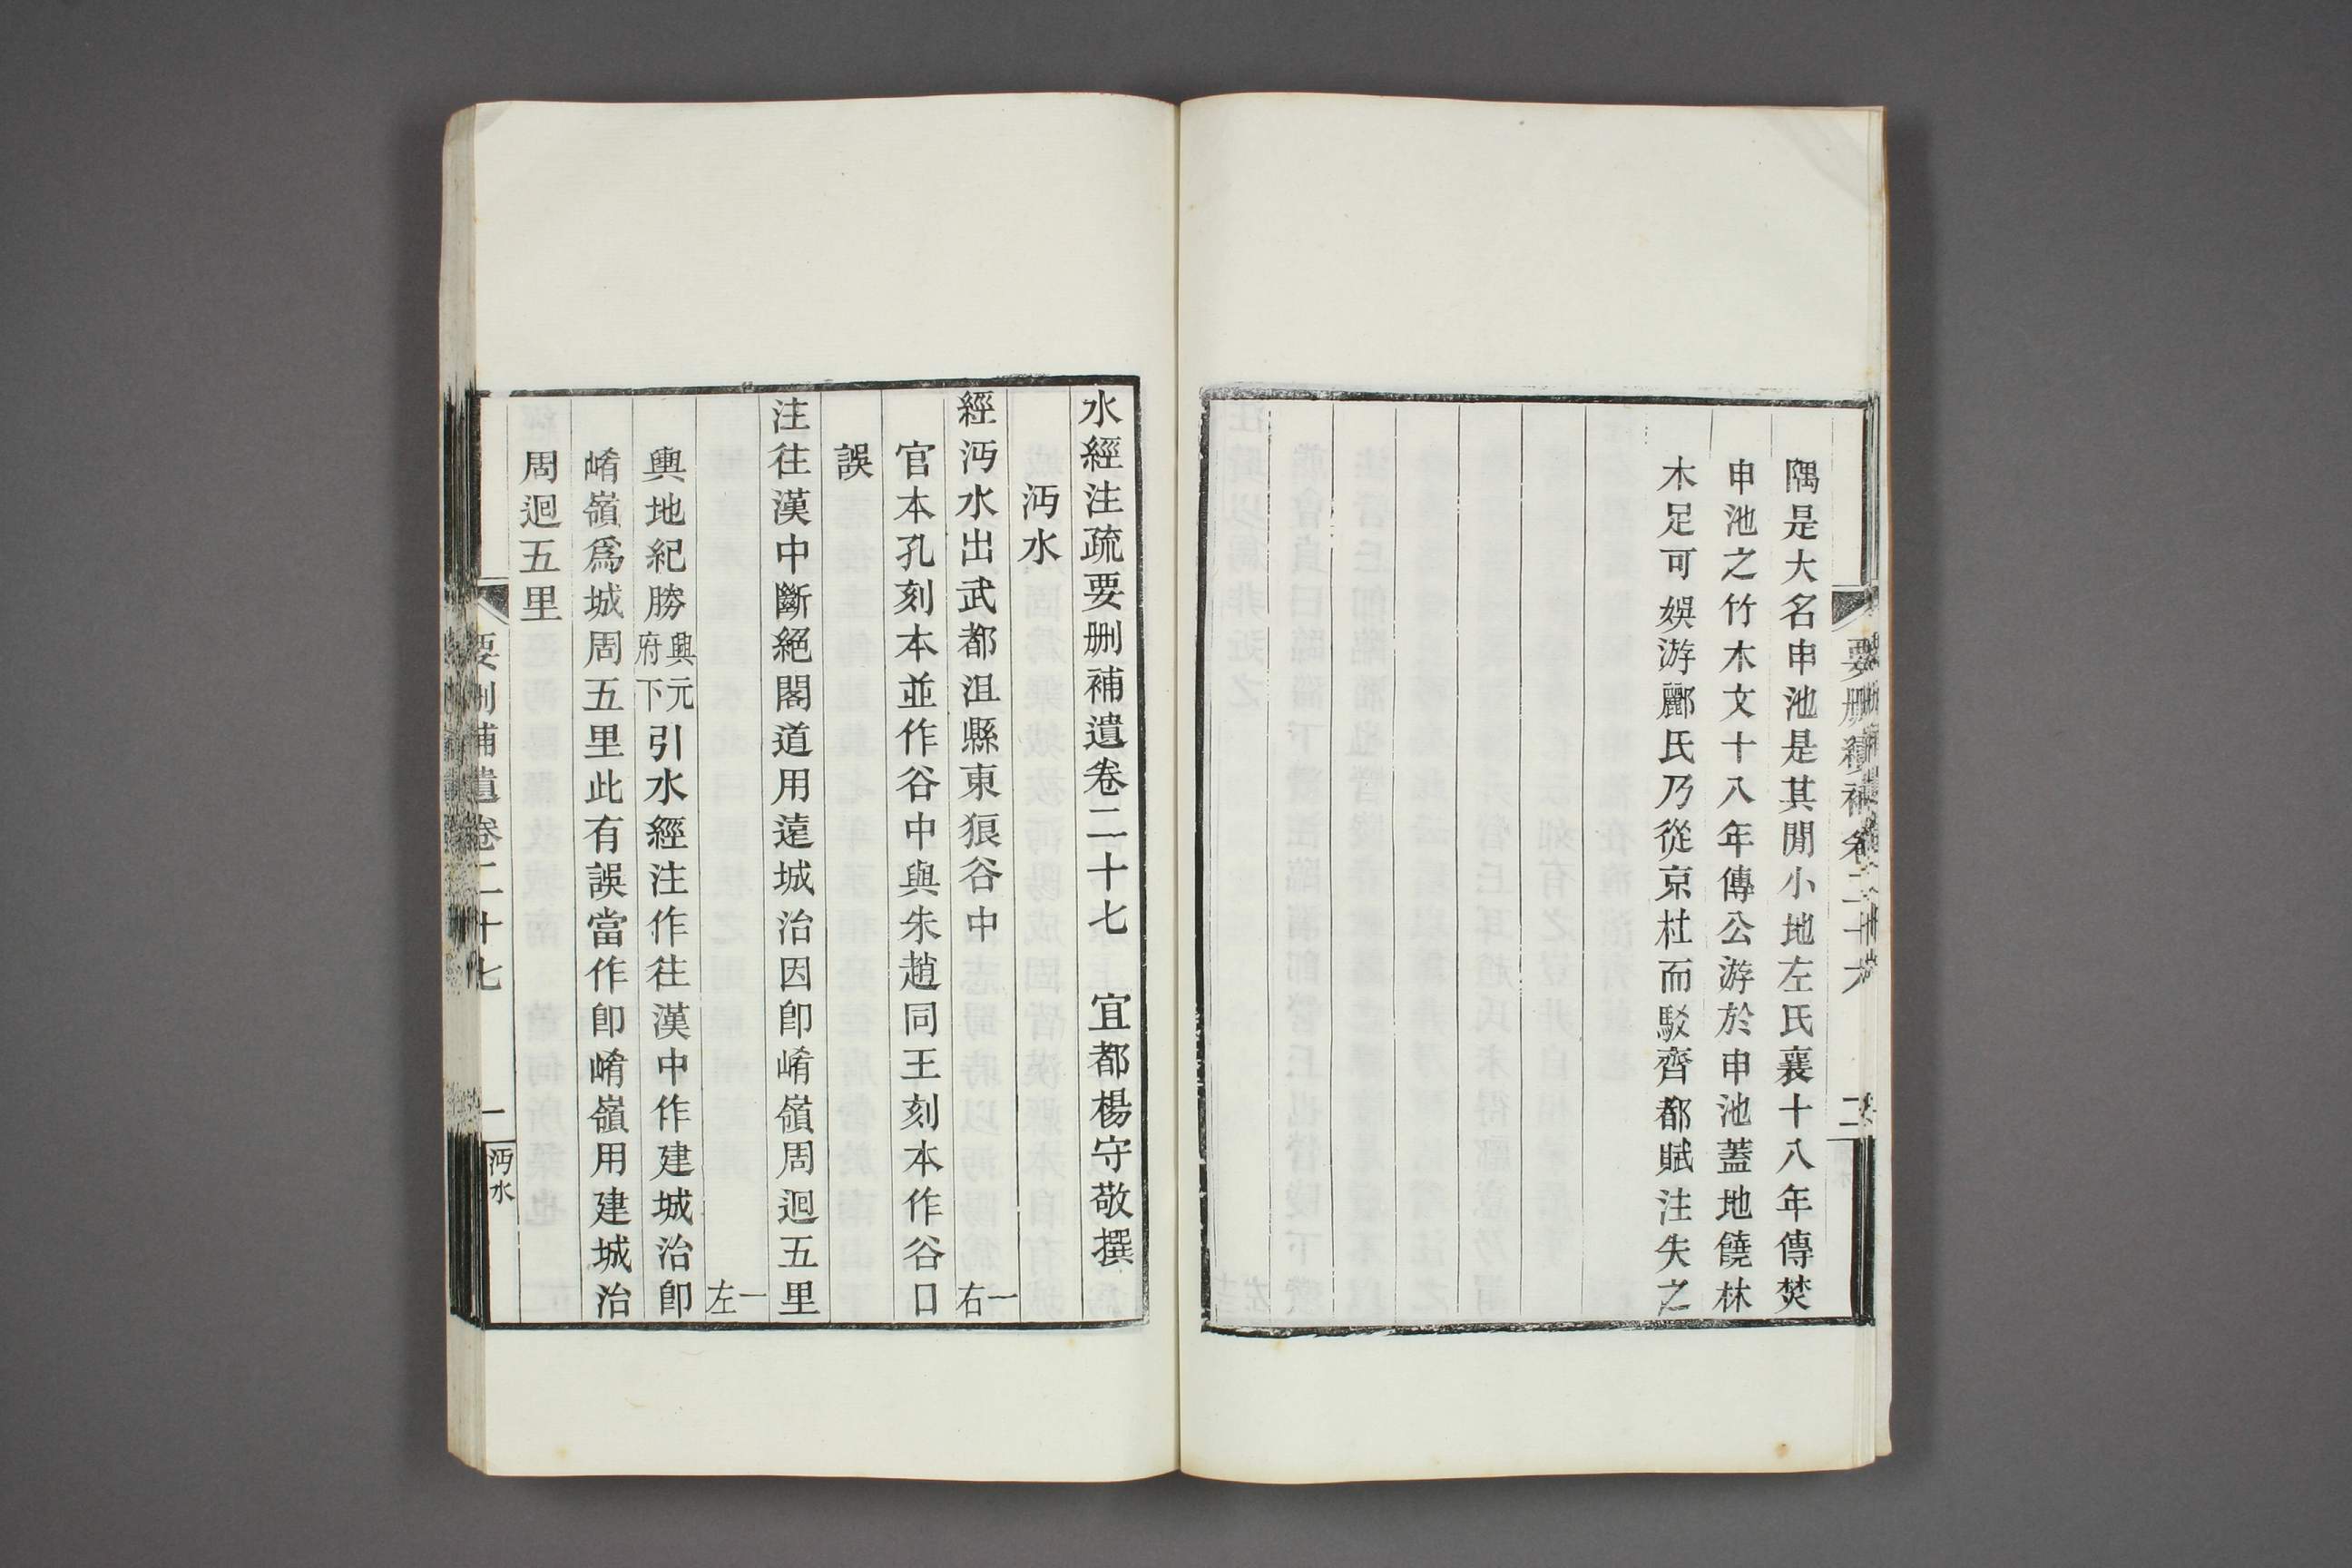 隅是大名申池是其閒小地左氏襄十八年傳焚
申池之竹木文十八年傳公游於申池蓋地饒林
木足可娛游酈氏乃從京杜而駁齊都賦注失之
水經注疏要刪補遺卷二十七　宜都楊守敬撰
沔水
經沔水出武都沮縣東狼谷中　一右
官本孔刻本並作谷中與朱趙同王刻本作谷口
誤
注往漢中斷絕閣道用遠城治因卽崤嶺周迴五里
一左
輿地紀勝興元府下引水經注作往漢中作建城治卽
崤嶺爲城周五里此有誤當作卽崤嶺用建城治
周迴五里
要刪補遺卷二十七　一　沔水